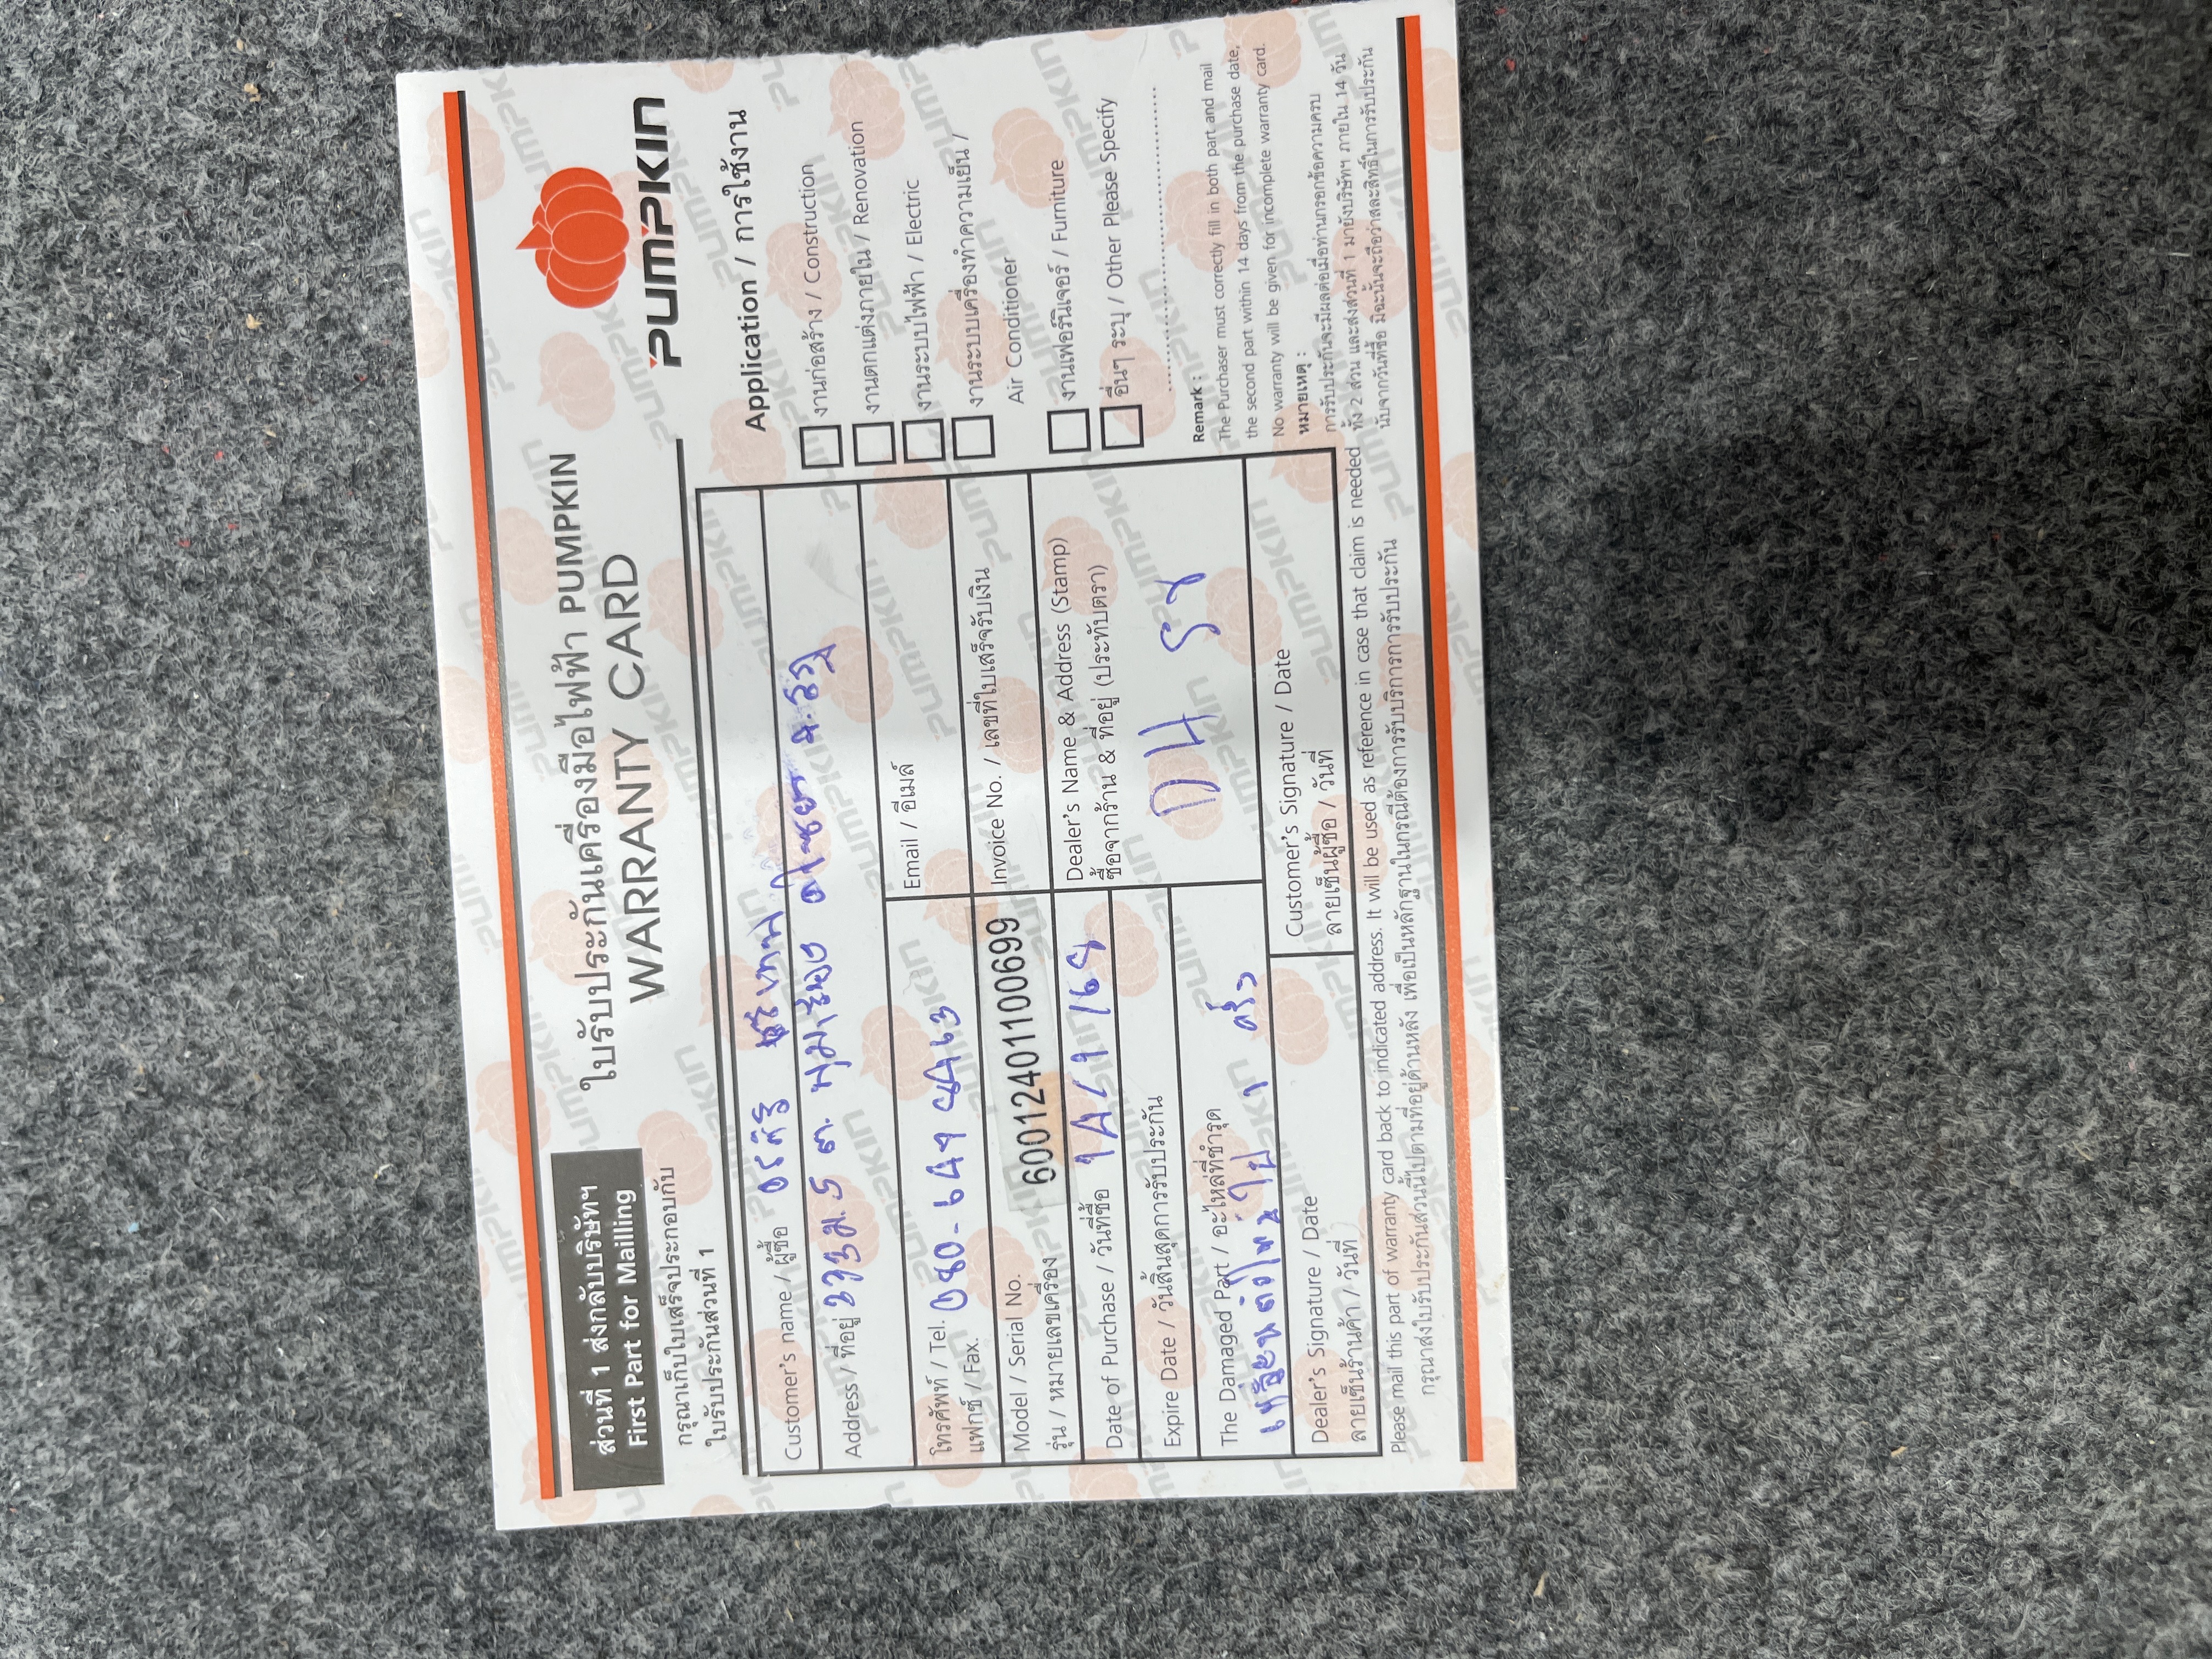 ส่วนที่ 1 ส่งกลับบริษัทฯ
First Part for Mailling
ใบรับประกันเครื่องมือไฟฟ้า PUMPKIN
WARRANTY CARD
PUMPKIN
กรุณาเก็บใบเสร็จประกอบกับ
ใบรับประกันส่วนที่ 1
Customer's name / ผู้ซื้อ
Address / ที่อยู่ ม.5 ต.
โทรศัพท์ / Tel. 080-
แฟกซ์ / Fax.
Email / อีเมล์
Model / Serial No.
รุ่น / หมายเลขเครื่อง
6001240110 0699
Invoice No. / เลขที่ใบเสร็จรับเงิน
Date of Purchase / วันที่ซื้อ
Expire Date / วันสิ้นสุดการรับประกัน
Dealer's Name & Address (Stamp)
ซื้อจากร้าน & ที่อยู่ (ประทับตรา)
The Damaged Part / อะไหล่ที่ชำรุด
Dealer's Signature / Date
ลายเซ็นร้านค้า / วันที่
Customer's Signature / Date
ลายเซ็นผู้ซื้อ / วันที่
Application / การใช้งาน
งานก่อสร้าง / Construction
งานตกแต่งภายใน / Renovation
งานระบบไฟฟ้า / Electric
งานระบบเครื่องทำความเย็น /
Air Conditioner
งานเฟอร์นิเจอร์ / Furniture
อื่นๆ ระบุ / Other Please Specify
Remark :
The Purchaser must correctly fill in both part and mail
the second part within 14 days from the purchase date,
No warranty will be given for incomplete warranty card.
หมายเหตุ :
การรับประกันจะมีผลต่อเมื่อท่านกรอกข้อความครบ
ทั้ง 2 ส่วน และส่งส่วนที่ 1 มายังบริษัทฯ ภายใน 14 วัน
นับจากวันที่ซื้อ มิฉะนั้นจะถือว่าสละสิทธิ์ในการรับประกัน
Please mail this part of warranty card back to indicated address. It will be used as reference in case that claim is needed
กรุณาส่งใบรับประกันส่วนนี้ไปตามที่อยู่ด้านหลัง เพื่อเป็นหลักฐานในกรณีต้องการรับบริการการรับประกัน